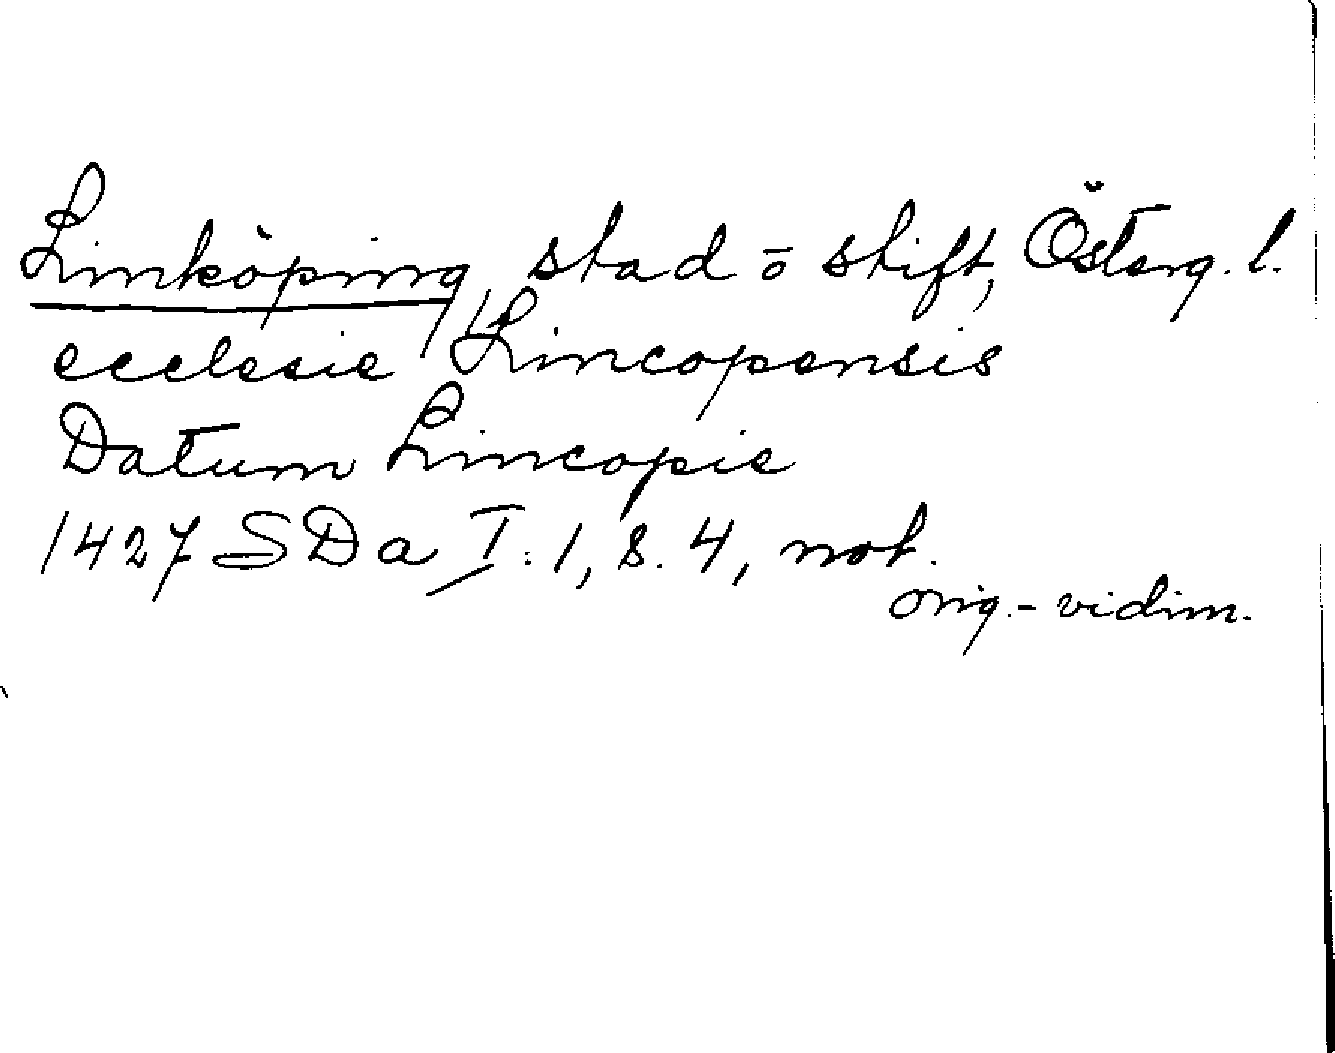 Linköping, stad o stift, Österg. l.
ecclesie Lincopensis
Datum Lincopie
1427 SDa I:1, s. 4, not.
orig.-vidim.